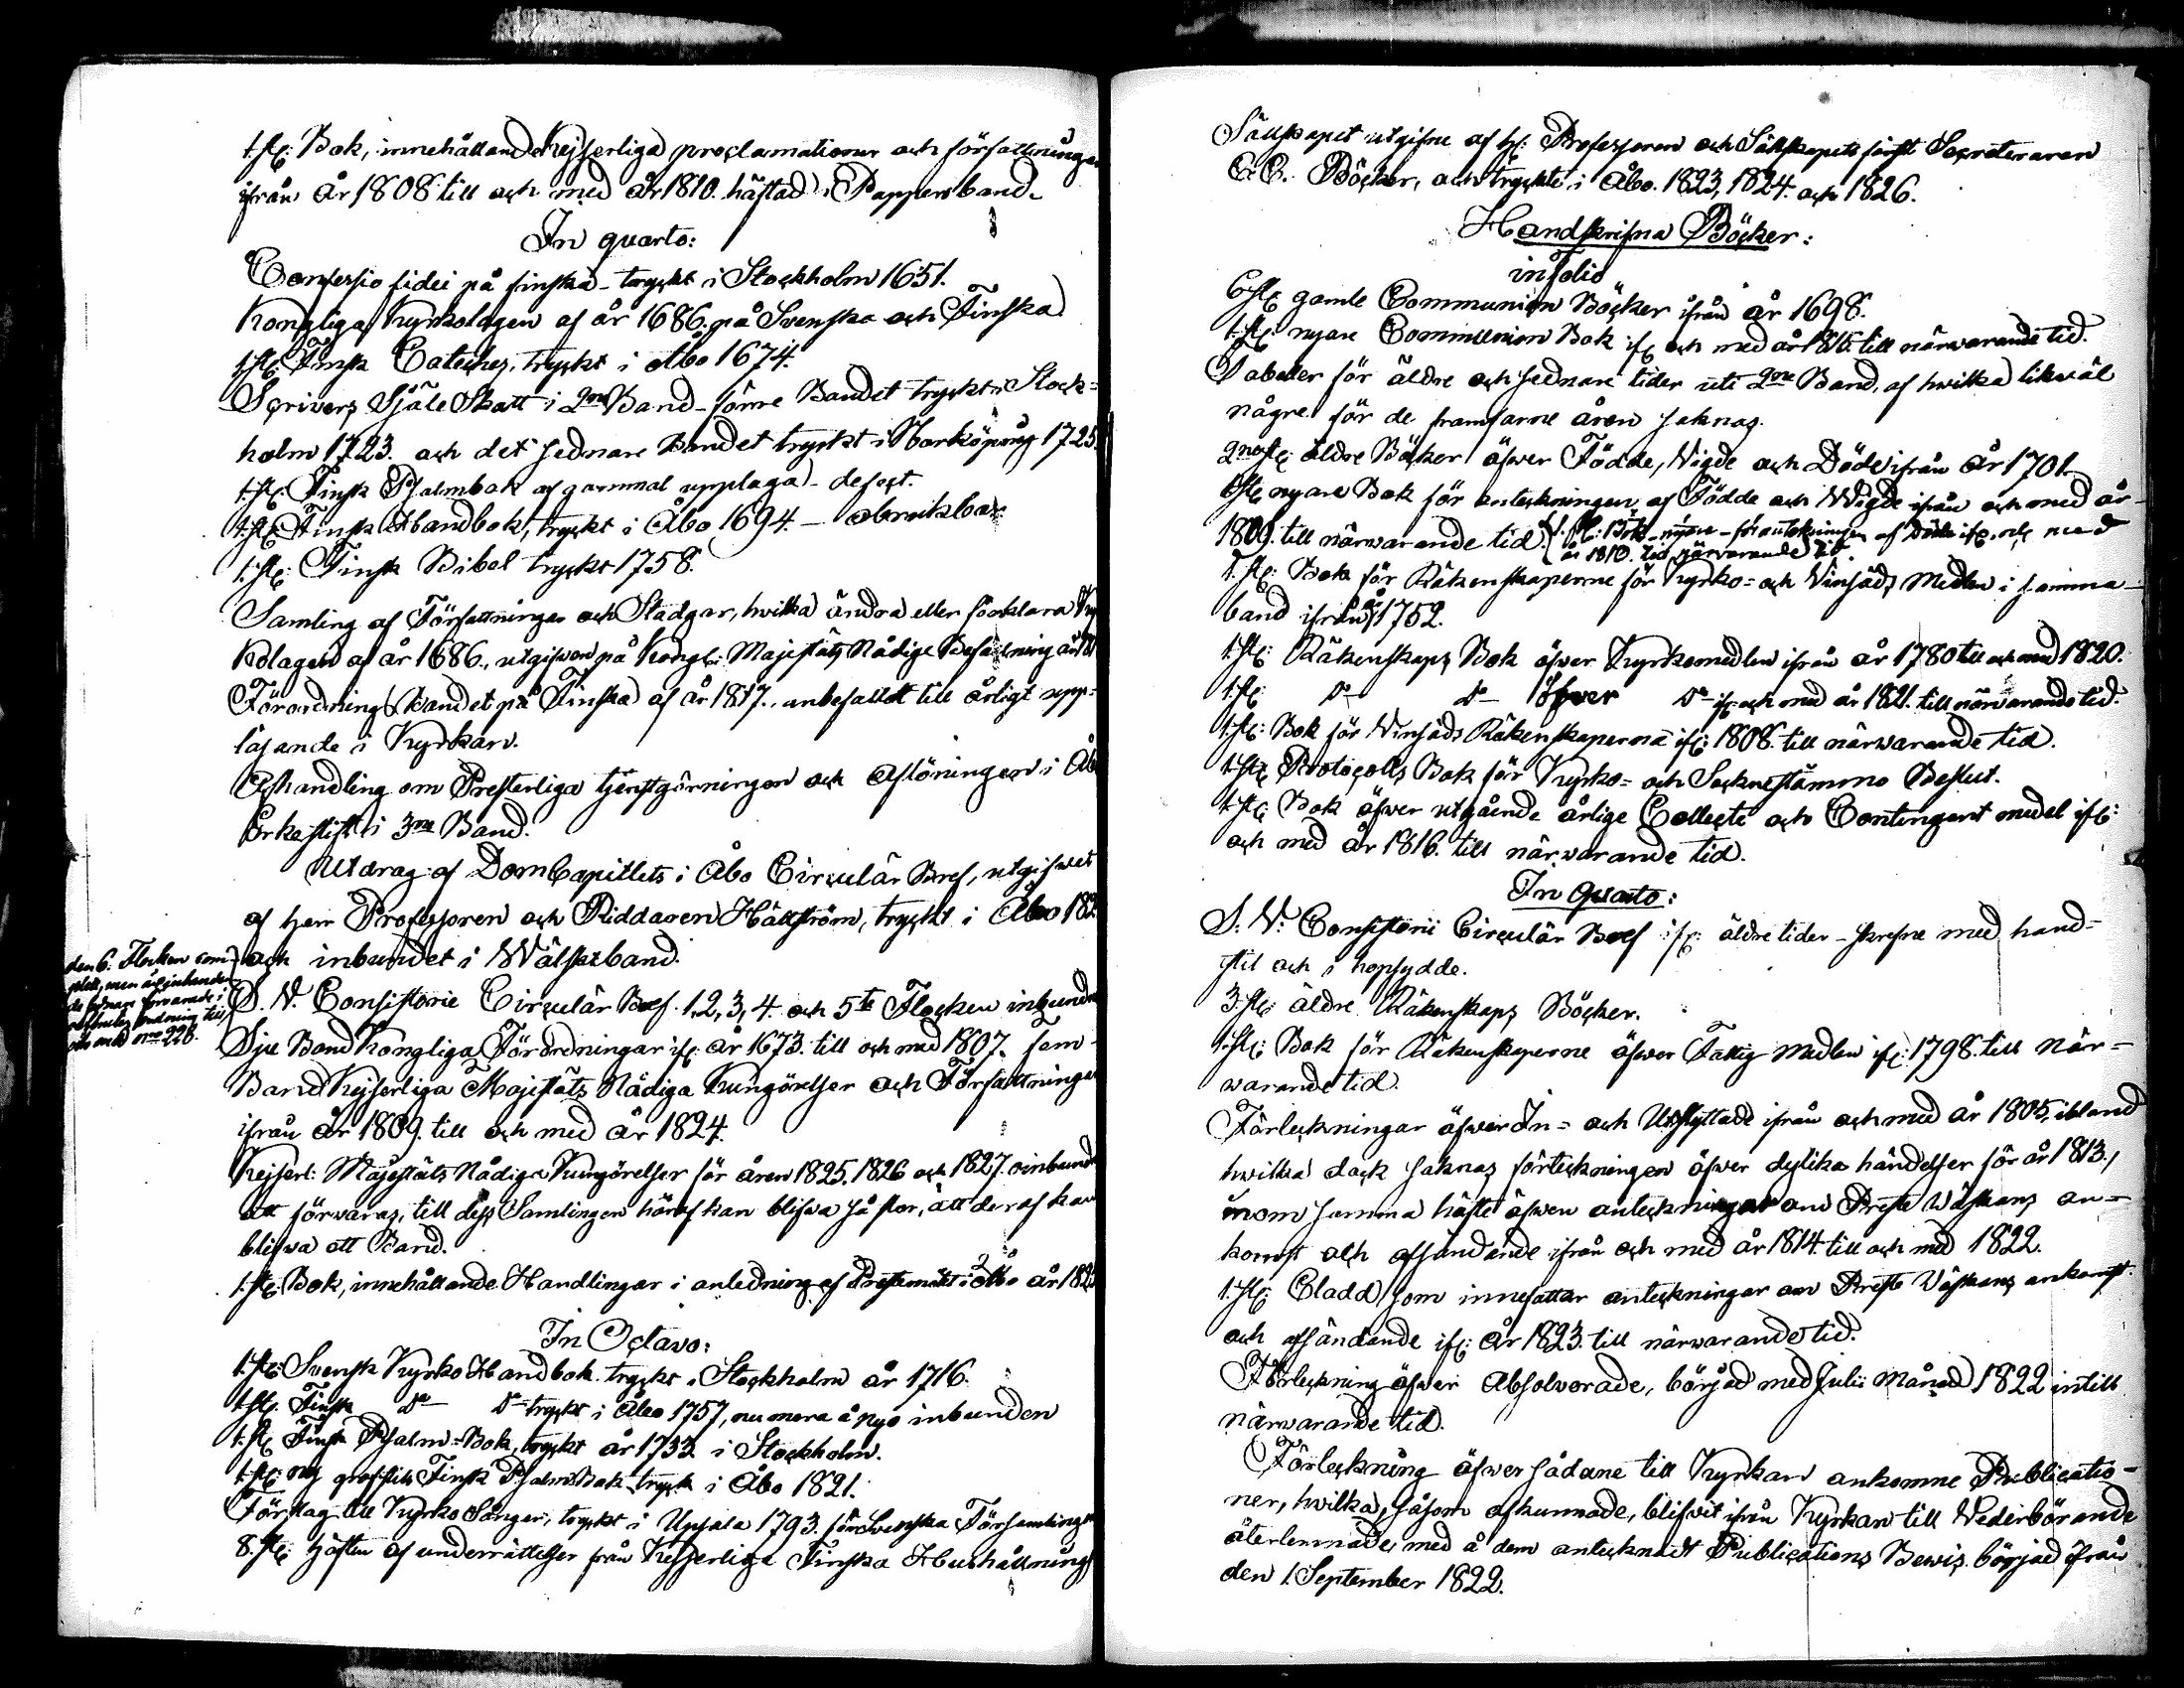 1. st: Bok, innehålland Kejserliga proclamationer och författningar
ifrån år 1808 till och med år 1810. häftad i Pappersband.
In quarto:
Confessio fidei på finska - tryckt i Stockholm 1651.
Kongliga Kyrkolagen af år 1686. på Svenska och Finska
1. st: Finsk Cateches, tryckt i Åbo 1674.
Scrivers Själe Skatt i 2ne Band - förre Bandet tryckt i Stock=
holm 1723. och det sednare Bandet tryckt i Norköping 1725.
1. st: Finsk Psalmbok af gammal upplaga - defect.
1. st: Finsk Handbok, tryckt i Åbo 1694. - obrukbar
1. st: Finsk Bibel tryckt 1758.
Samling af Författningar och Stadgar, hvilka ändra eller förklara Kyr
kolagen af år 1686., utgifwen på Kongl: Majestäts Nådige Befallning
Förordnings Bandet på Finska af år 1817., anbefalldt till årligt upp=
läsande i Kyrkan.
Afhandling om Presterliga tjenstgörningen och Aflöningen i Åbo
Erkestift i 3ne Band.
Utdrag af DomCapitlets i Åbo Circulär Bref, utgifwet
af herr Professoren och Riddaren Hällström, tryckt i Åbo 182
och inbundet i Wälskt band.
den 6: Flocken com-
plett, men
de sednare förvarade i
ordning till
och med nro 226.
S. V. Consistorie Circulär Bref. 1, 2, 3, 4. och 5te Flocken inbundne
Sju Band Kongliga Förordningar ifr: år 1673. till och med 1807. Fem
Band Kejserliga Majestäts Nådiga Kungörelser och Författningar
ifrån år 1809. till och med år 1824.
Kejserl: Majestäts Nådiga Kungörelser för åren 1825. 1826 och 1827. oinbund
att förvaras, till dess Samlingen häraf kan blifwa så stor, att deraf kan
blifwa ett Band.
1. st: Bok, innehållande Handlingar i anledning af Prestemötet i Åbo år 182
In Octavo:
1. st: Svensk Kyrko Handbok. tryckt i Stockholm år 1716.
1. st: Finsk do do tryckt i Åbo 1757, nu mera å nyo inbunden
1. st: Finsk Psalm=Bok, tryckt år 1733. i Stockholm.
1. st: ny grofstils Finsk PsalmBok tryckt i Åbo 1821.
Förslag till Kyrko Sånger, tryckt i Upsala 1793. för Svenska Församlinga
8. st: häften af underrättelser från Kejserliga Finska Hushållnings
Sällskapet utgifne af hr: Professoren och Sällskapets förste Secreteraren
C. C. Böcker, och tryckte i Åbo. 1823, 1824. och 1826.
Handskrifna Böcker:
in folio
6. st: gamle Communion Böcker ifrån år 1698.
1. st: nyare Communion Bok ifr: och med år 1815. till närwarande tid.
Tabeller för äldre och sednare tider uti 2ne Band, af hwilka likwäl
någre för de framfarne åren saknas.
2ne st: äldre Böcker öfwer Födde, Wigde och Döde ifrån år 1701.
1. st: nyare Bok för anteckningen af Födde och Wigde ifrån och med år
1809. till närwarande tid. 1. st: Bok - nyare - för anteckningen af Döde ifr: och med
år 1810. till närvarande tid.
1. st: Bok för Räkenskaperne för Kyrko= och Vinsäds Medlen i samma
band ifrån år 1752.
1. st: Räkenskaps Bok öfwer Kyrkomedlen ifrån år 1780 till och med 1820.
1. st: do do öfwer do ifr: och med år 1821. till närwarande tid.
1. st: Bok för Vinsäds Räkenskaperna ifr: 1808. till närwarande tid.
1. st: Protocolls Bok för Kyrko= och Sockne stämmo Beslut.
1. st: Bok öfwer utgående årlige Collecte och Contingent medel ifr:
och med år 1816. till närwarande tid.
In Quarto:
S. V. Consistorii Circulär Bref ifr: äldre tider - skrefne med hand=
stil och i hopsydde.
3. st: äldre Räkenskaps Böcker.
1. st: Bok för Räkenskaperne öfwer Fattig medlen ifr: 1798. till när=
warande tid.
Förteckningar öfwer In= och Utflyttade ifrån och med år 1805, ibland
hwilka dock saknas förteckningen öfwer dylika händelser för år 1813.,
inom samma häfte äfwen anteckningar om Preste Wäskans an=
komst och afsändande ifrån och med år 1814. till och med 1822.
1. st: Cladd som innefattar anteckningar om Preste Väskans ankomst
och afsändande ifr: år 1823. till närwarande tid.
Förteckning öfwer Absolverade, börjad med Julii Månad 1822 intill
närwarande tid.
Förteckning öfwer sådane till Kyrkan ankomne Publicatio-
ner, hvilka, såsom afkunnade, blifvit ifrån Kyrkan till Wederbörande
återlemnade, med å dem antecknadt Publications Bewis. börjad ifrån
den 1. September 1822.